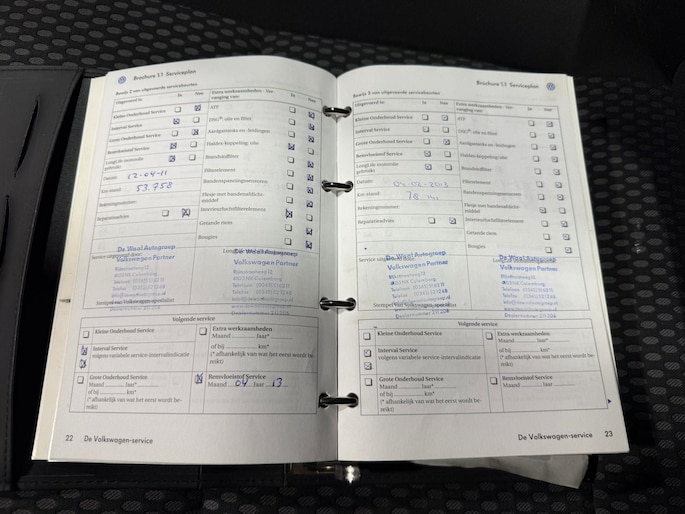 Brochure 1.1 Serviceplan
Bewijs 2 van uitgevoerde servicebeurten
Uitgevoerd is: Ja Nee
Kleine Onderhoud Service
Interval Service
Grote Onderhoud Service
Remvloeistof Service
LongLife motorolie gebruikt
Datum: 12-04-11
Km stand: 53.758
Rekeningnummer:
Reparatieadvies
Extra werkzaamheden - Vervanging van: Ja Nee
ATF
DSG®-olie en filter
Aardgastanks en -leidingen
Haldex-koppeling; olie
Brandstoffilter
Filterelement
Bandenspanningssensoren
Flesje met bandenafdichtmiddel
Interieurluchtfilterelement
Getande riem
Bougies
Service uitgevoerd door:
De Waal Autogroep
Volkswagen Partner
De Waal Autogroep
Volkswagen Partner
Stempel van Volkswagen-specialist
Volgende service
Kleine Onderhoud Service
Interval Service
volgens variabele service-intervalindicatie
Grote Onderhoud Service
Maand .......... Jaar*
of bij .......... km*
(* afhankelijk van wat het eerst wordt bereikt)
Extra werkzaamheden
Maand .......... Jaar*
of bij .......... km*
(* afhankelijk van wat het eerst wordt bereikt)
Remvloeistof Service
Maand 04 Jaar 13
22 De Volkswagen-service
Brochure 1.1 Serviceplan
Bewijs 3 van uitgevoerde servicebeurten
Uitgevoerd is: Ja Nee
Kleine Onderhoud Service
Interval Service
Grote Onderhoud Service
Remvloeistof Service
LongLife motorolie gebruikt
Datum: 04-02-2013
Km stand:
Rekeningnummer:
Reparatieadvies
Extra werkzaamheden - Vervanging van: Ja Nee
ATF
DSG®-olie en filter
Aardgastanks en -leidingen
Haldex-koppeling; olie
Brandstoffilter
Filterelement
Bandenspanningssensoren
Flesje met bandenafdichtmiddel
Interieurluchtfilterelement
Getande riem
Bougies
Service uitgevoerd door:
De Waal Autogroep
Volkswagen Partner
De Waal Autogroep
Volkswagen Partner
Stempel van Volkswagen-specialist
Volgende service
Kleine Onderhoud Service
Interval Service
volgens variabele service-intervalindicatie
Grote Onderhoud Service
Maand .......... Jaar*
of bij .......... km*
(* afhankelijk van wat het eerst wordt bereikt)
Extra werkzaamheden
Maand .......... Jaar*
of bij .......... km*
(* afhankelijk van wat het eerst wordt bereikt)
Remvloeistof Service
Maand .......... Jaar
De Volkswagen-service 23